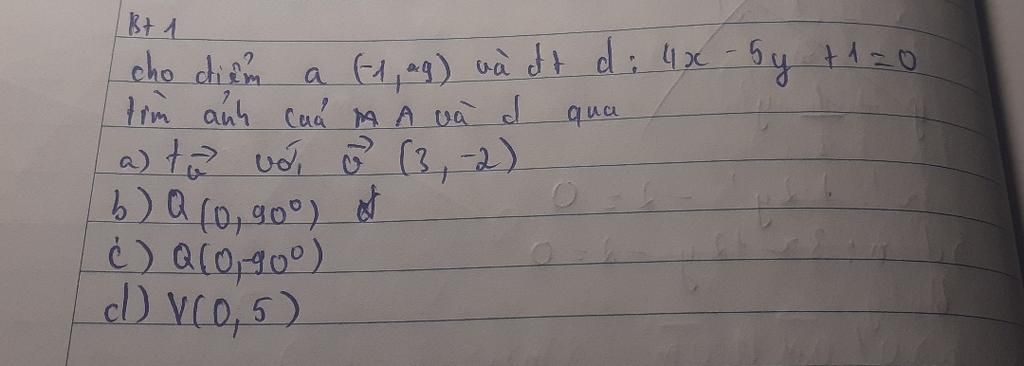 Bt 1
cho điểm a (-1, -9) và đt d: 4x - 5y + 1 = 0
tìm ảnh của A và d qua
a) t v⃗ với v⃗ (3, -2)
b) Q(0, 90°)
c) Q(0, -90°)
d) V(0, 5)